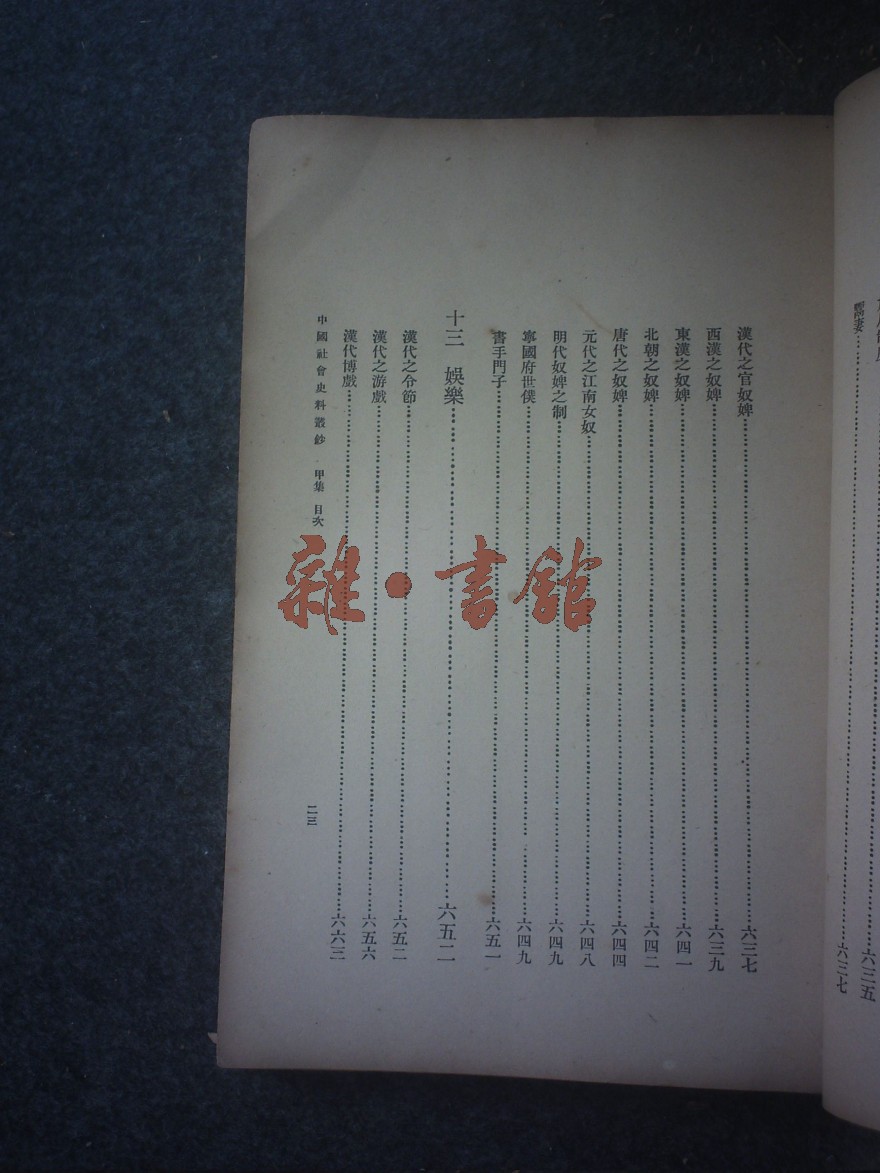 鬻妻……六三七
漢代之官奴婢……六三七
西漢之奴婢……六三九
東漢之奴婢……六四一
北朝之奴婢……六四二
唐代之奴婢……六四四
元代之江南女奴……六四八
明代奴婢之制……六四九
寧國府世僕……六四九
書手門子……六五一
十三 娛樂……六五二
漢代之令節……六五二
漢代之游戲……六五六
漢代博戲……六六三
中國社會史料叢鈔 甲集 目次
二三
雜·書館